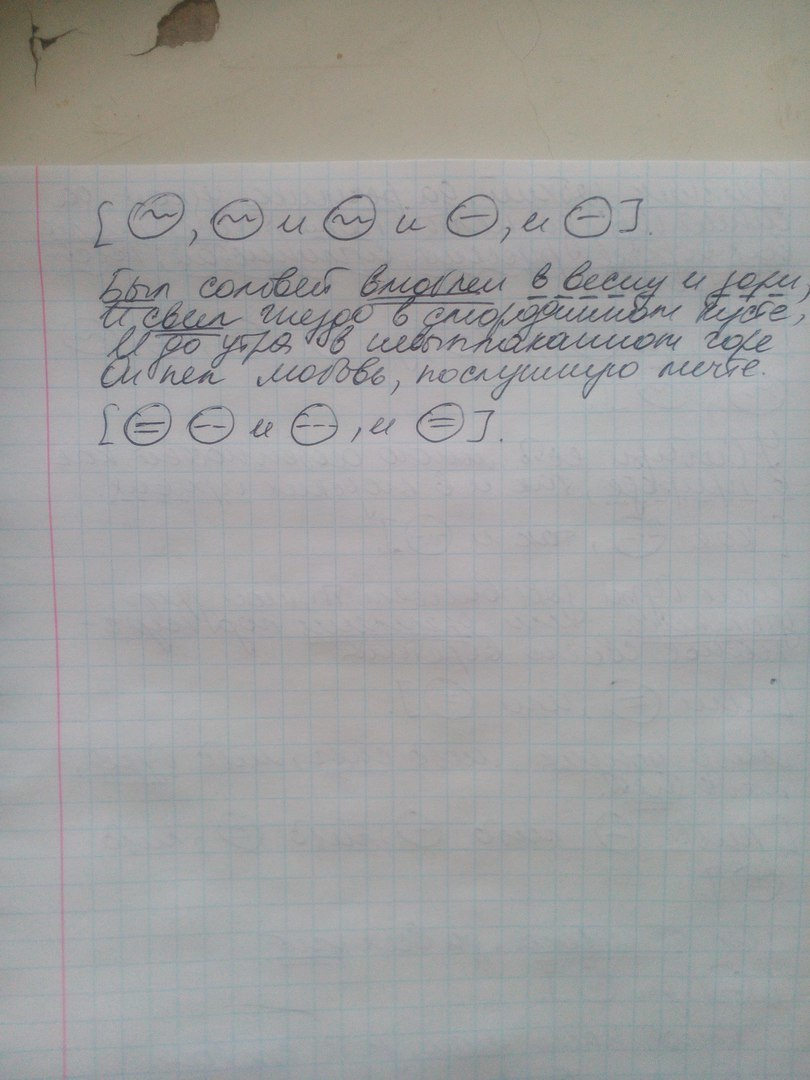 [ ~, ~ и ~ и –, и – ].
Был соловей влюблен в весну и зори,
И свил гнездо в смородинном кусте,
И до утра в невыплаканном горе
Он пел любовь, послушную мечте.
[ = -- и --, и = ].